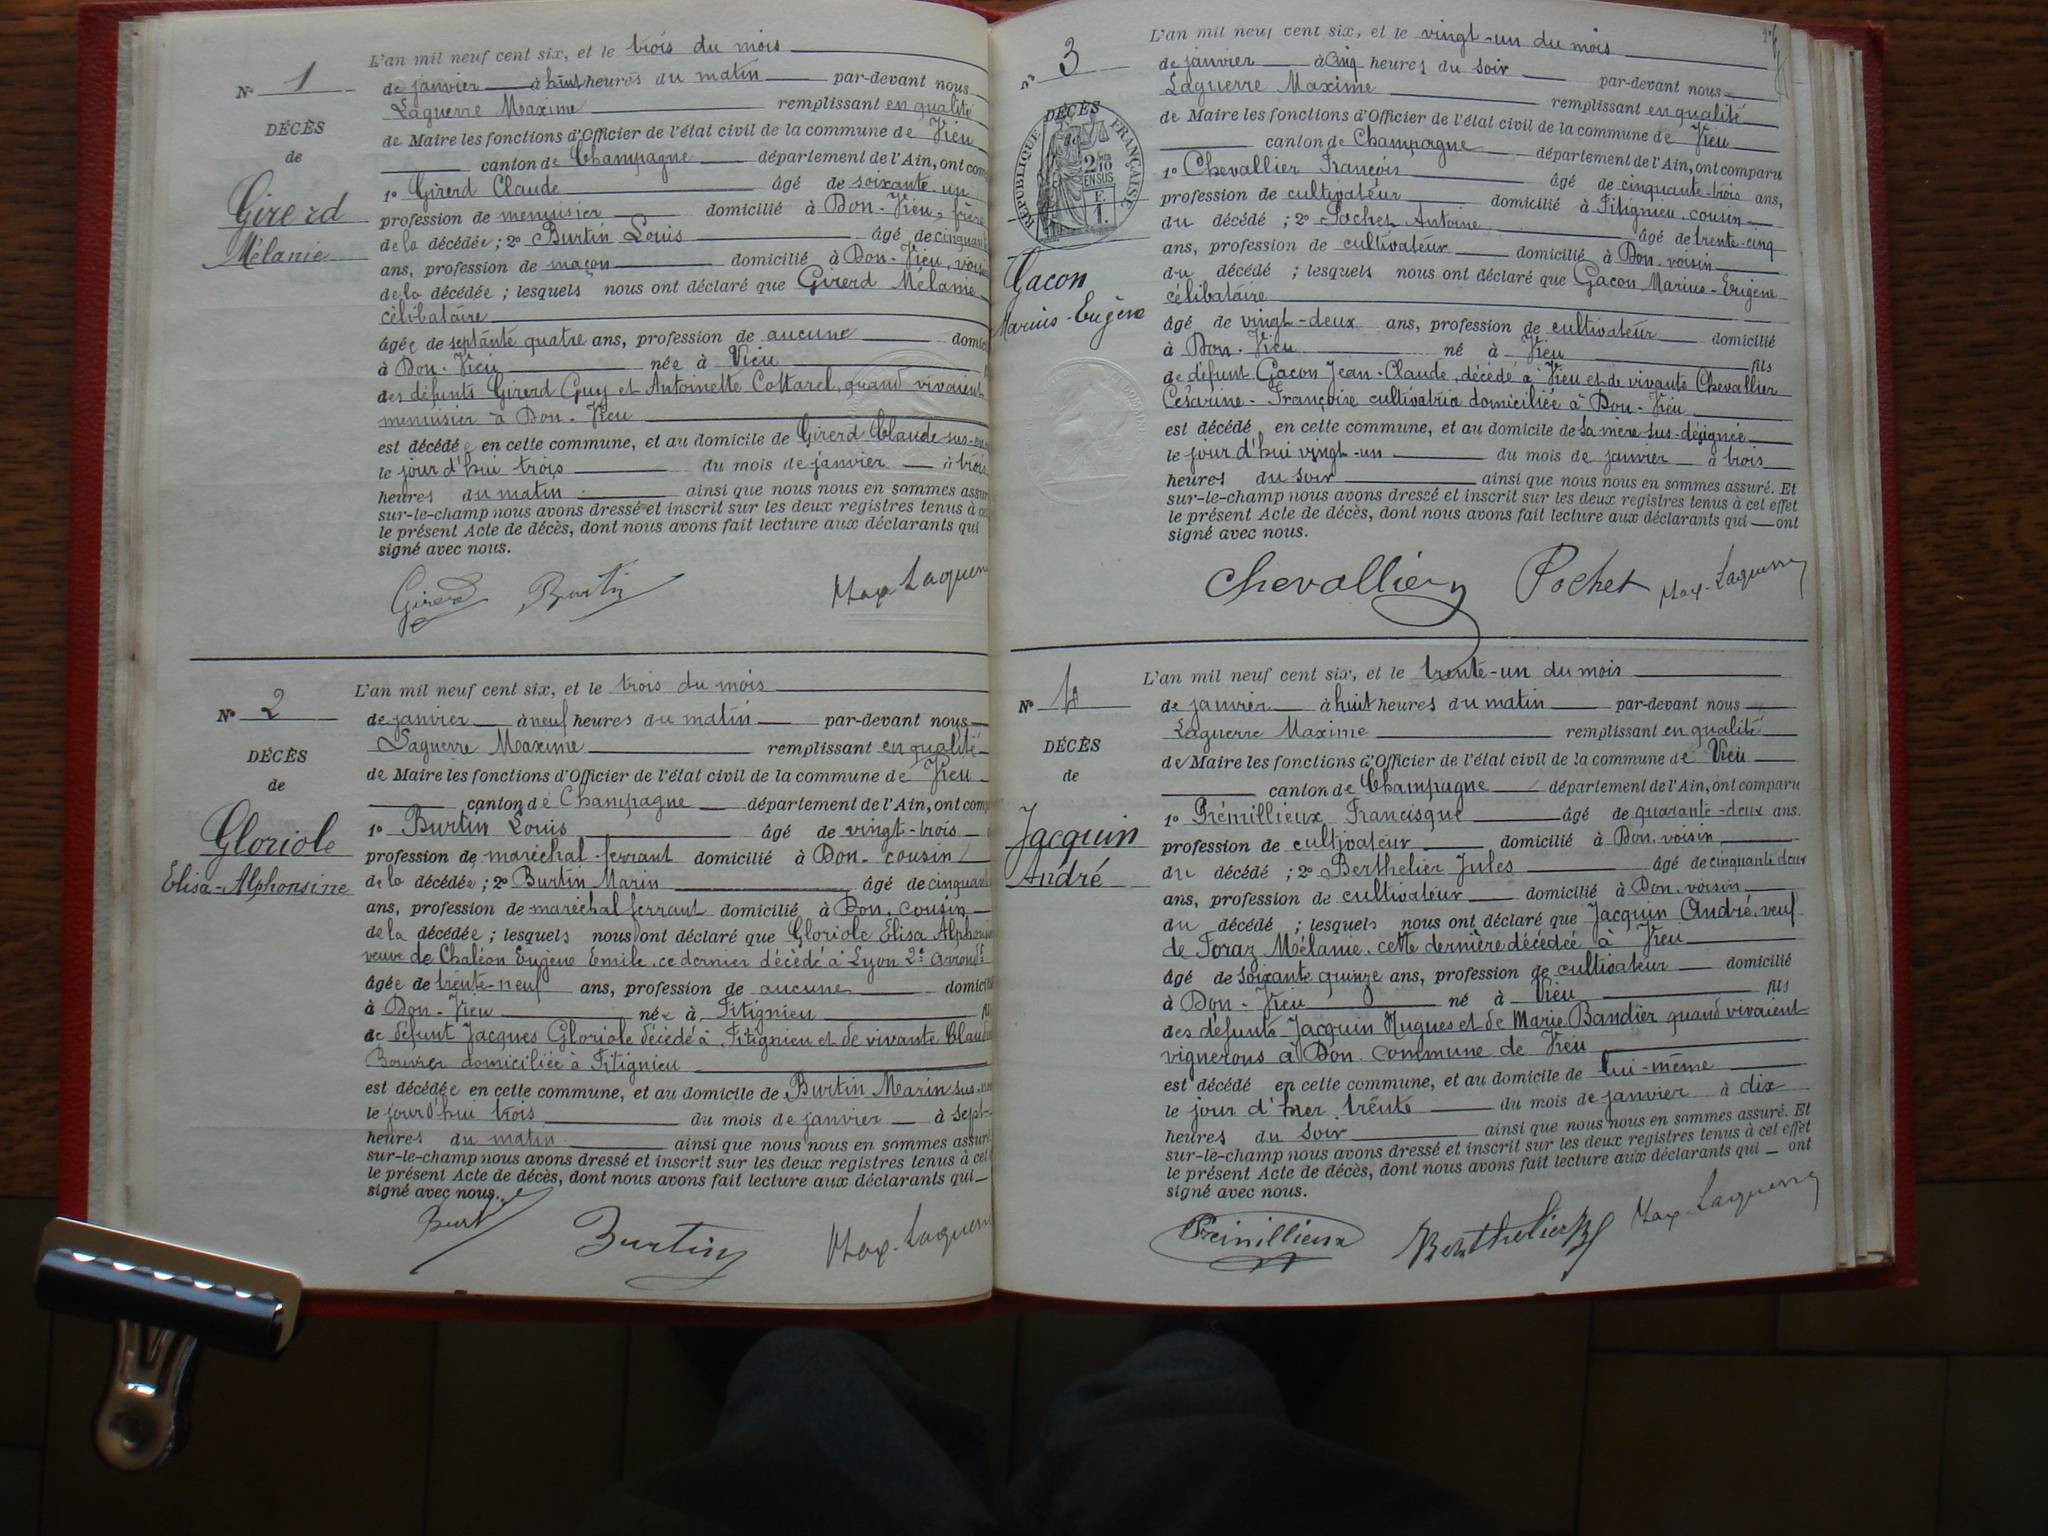 N° 1
DÉCÈS
de
Girerd
Mélanie
L'an mil neuf cent six, et le trois du mois
de janvier à huit heures du matin par-devant nous
Laguerre Maxime remplissant en qualité
de Maire les fonctions d'Officier de l'état civil de la commune de Vieu
canton de Champagne département de l'Ain, ont com
1° Girerd Claude âgé de soixante-un
profession de menuisier domicilié à Don-Vieu, frère
de la décédée ; 2° Burtin Louis âgé de cinquant
ans, profession de maçon domicilié à Don-Vieu, voisi
de la décédée ; lesquels nous ont déclaré que Girerd Mélanie
célibataire
âgée de septante quatre ans, profession de aucune domici
à Don-Vieu née à Vieu
des défunts Girerd Guy et Antoinette Cottarel, quand vivaient
menuisier à Don-Vieu
est décédée en cette commune, et au domicile de Girerd Claude sus-
le jour d'hui trois du mois de janvier à trois
heures du matin ainsi que nous nous en sommes assur
sur-le-champ nous avons dressé et inscrit sur les deux registres tenus à ce
le présent Acte de décès, dont nous avons fait lecture aux déclarants qui
signé avec nous.
Girerd Burtin Max-Laguerre
N° 2
DÉCÈS
de
Gloriole
Elisa-Alphonsine
L'an mil neuf cent six, et le trois du mois
de janvier à neuf heures du matin par-devant nous
Laguerre Maxime remplissant en qualité
de Maire les fonctions d'Officier de l'état civil de la commune de Vieu
canton de Champagne département de l'Ain, ont comp
1° Burtin Louis âgé de vingt-trois
profession de maréchal-ferrant domicilié à Don-cousin
de la décédée ; 2° Burtin Marin âgé de cinquant
ans, profession de maréchal ferrant domicilié à Don, cousin
de la décédée ; lesquels nous ont déclaré que Gloriole Elisa Alphons
veuve de Chaléon Eugène Emile, ce dernier décédé à Lyon 2e arrondt
âgée de trente-neuf ans, profession de aucune domici
à Don-Vieu née à Fitignieu
de défunt Jacques Gloriole décédé à Fitignieu et de vivante Claud
Bouvier domiciliée à Fitignieu
est décédée en cette commune, et au domicile de Burtin Marin sus-
le jour d'hui trois du mois de janvier à sept
heures du matin ainsi que nous nous en sommes assuré
sur-le-champ nous avons dressé et inscrit sur les deux registres tenus à cet
le présent Acte de décès, dont nous avons fait lecture aux déclarants qui
signé avec nous.
Burtin Burtin Max-Laguerre
N° 3
DÉCÈS
de
RÉPUBLIQUE FRANÇAISE
2/10 EN SUS
F. 1.
Gacon
Marius-Eugène
L'an mil neuf cent six, et le vingt-un du mois
de janvier à cinq heures du soir par-devant nous
Laguerre Maxime remplissant en qualité
de Maire les fonctions d'Officier de l'état civil de la commune de Vieu
canton de Champagne département de l'Ain, ont comparu
1° Chevallier François âgé de cinquante-trois ans,
profession de cultivateur domicilié à Fitignieu, cousin
du décédé ; 2° Pochet Antoine âgé de trente-cinq
ans, profession de cultivateur domicilié à Don, voisin
du décédé ; lesquels nous ont déclaré que Gacon Marius-Eugène
célibataire
âgé de vingt-deux ans, profession de cultivateur domicilié
à Don-Vieu né à Vieu fils
de défunt Gacon Jean-Claude, décédé à Vieu et de vivante Chevallier
Césarine-Françoise cultivatrice domiciliée à Don-Vieu
est décédé en cette commune, et au domicile de sa mère sus-désignée
le jour d'hui vingt-un du mois de janvier à trois
heures du soir ainsi que nous nous en sommes assuré. Et
sur-le-champ nous avons dressé et inscrit sur les deux registres tenus à cet effet
le présent Acte de décès, dont nous avons fait lecture aux déclarants qui ont
signé avec nous.
Chevallier Pochet Max-Laguerre
N° 4
DÉCÈS
de
Jacquin
André
L'an mil neuf cent six, et le trente-un du mois
de janvier à huit heures du matin par-devant nous
Laguerre Maxime remplissant en qualité
de Maire les fonctions d'Officier de l'état civil de la commune de Vieu
canton de Champagne département de l'Ain, ont comparu
1° Prémillieux Francisque âgé de quarante-deux ans.
profession de cultivateur domicilié à Don, voisin
du décédé ; 2° Berthelier Jules âgé de cinquante deux
ans, profession de cultivateur domicilié à Don, voisin
du décédé ; lesquels nous ont déclaré que Jacquin André, veuf
de Foraz Mélanie, cette dernière décédée à Vieu
âgé de soixante quinze ans, profession de cultivateur domicilié
à Don-Vieu né à Vieu fils
des défunts Jacquin Hugues et de Marie Bandier quand vivaient
vignerons à Don commune de Vieu
est décédé en cette commune, et au domicile de lui-même
le jour d'hier trente du mois de janvier à dix
heures du soir ainsi que nous nous en sommes assuré. Et
sur-le-champ nous avons dressé et inscrit sur les deux registres tenus à cet effet
le présent Acte de décès, dont nous avons fait lecture aux déclarants qui ont
signé avec nous.
Prémillieux Berthelier Max-Laguerre